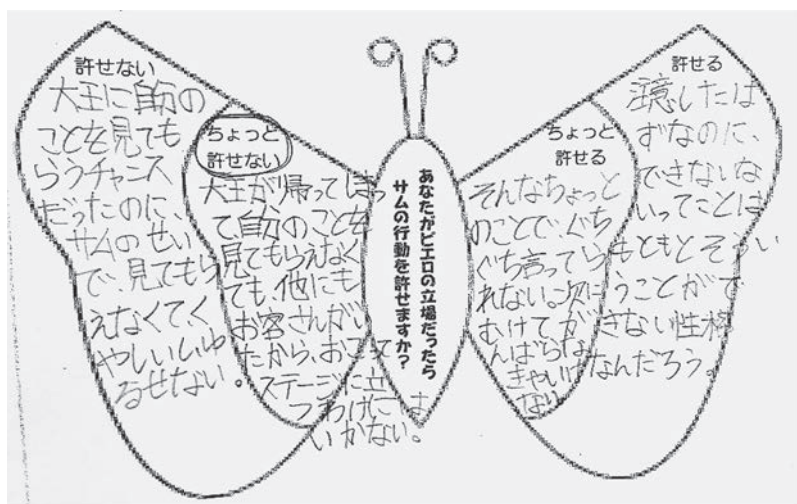 許せない
大王に自分の
ことを見ても
らうチャンス
だったのに、
サムのせい
で、見てもら
えなくて、く
やしいしゆ
るせない。
ちょっと
許せない
大王が帰ってしまっ
て、自分のことを
見てもらえなく
ても、他にも
お客さんがい
たから、おこって
ステージに立
つわけには
いかない。
あなたがピエロの立場だったら
サムの行動を許せますか?
ちょっと
許せる
そんなちょっと
のことで、ぐち
ぐち言ってら
れない。次に
むけてが
んばらな
きゃいけ
ない
許せる
注意したは
ずなのに、
できないな
いってことは
もともとそうい
うことがで
きない性格
なんだろう。